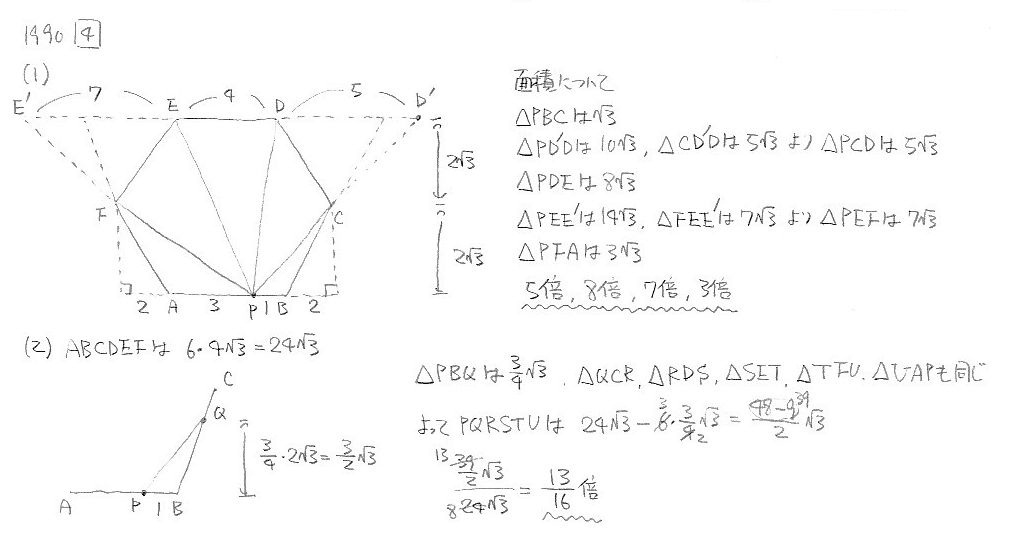 1990 4
(1)
E' 7 E 4 D 5 D'
2√3
F C
2√3
2 A 3 P 1 B 2
面積について
△PBCは√3
△PD'Dは10√3, △CD'Dは5√3より△PCDは5√3
△PDEは8√3
△PEE'は14√3, △FEE'は7√3より△PEFは7√3
△PFAは3√3
5倍, 8倍, 7倍, 3倍
(2) ABCDEFは 6・4√3=24√3
C
Q
3/4・2√3=3/2√3
A P 1 B
△PBQは3/4√3, △QCR, △RDS, △SET, △TFU, △UAPも同じ
よってPQRSTUは 24√3-6・3/4√3=(48-9)/2√3
(39/2√3)/(24√3)=13/16倍